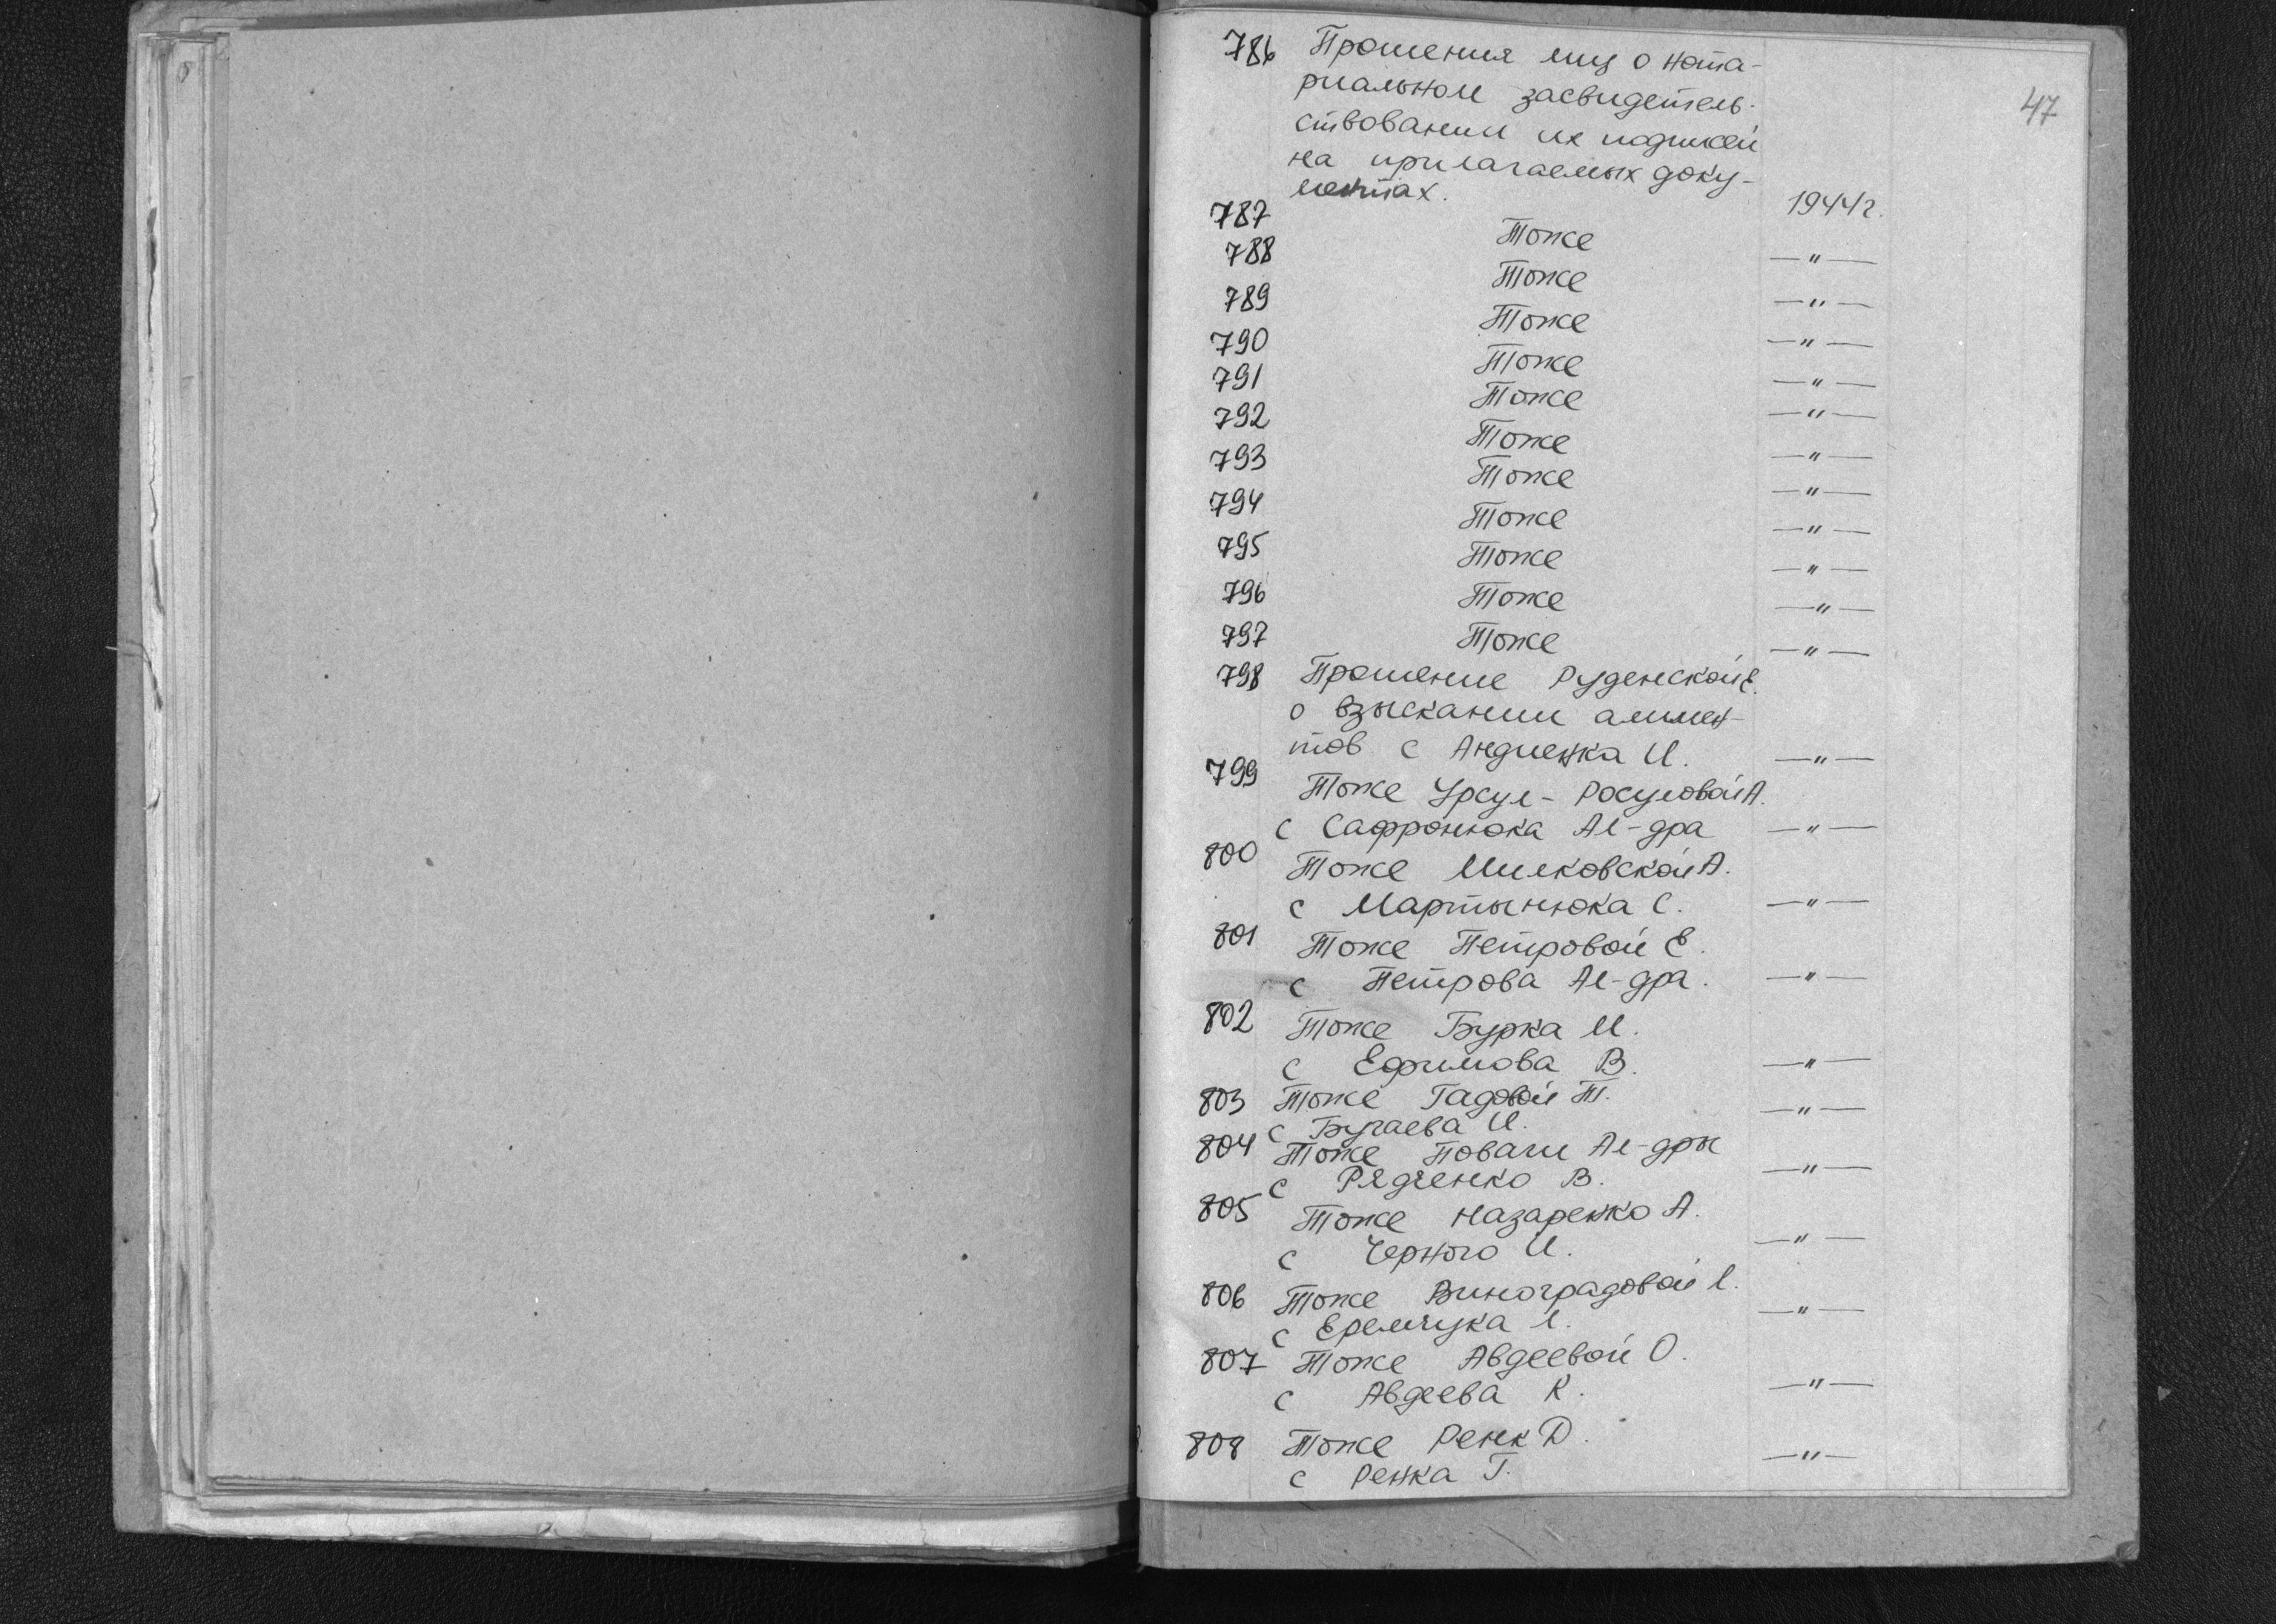 47
786 Прошения лиц о нота-
риальном засвидетель-
ствовании их подписей
на прилагаемых доку-
ментах. 1944 г.
787 Тоже —"—
788 Тоже —"—
789 Тоже —"—
790 Тоже —"—
791 Тоже —"—
792 Тоже —"—
793 Тоже —"—
794 Тоже —"—
795 Тоже —"—
796 Тоже —"—
797 Тоже —"—
798 Прошение Руденской Е.
о взыскании алимен-
тов с Андиенка И. —"—
799 Тоже Урсул - Росуловой А.
с Сафронюка Ал-дра —"—
800 Тоже Милковской А.
с Мартынюка С. —"—
801 Тоже Петровой Е.
с Петрова Ал-дра. —"—
802 Тоже Бурка М.
с Ефимова В. —"—
803 Тоже Гадовой Т. —"—
с Бугаева И.
804 Тоже Поваги Ал-дры
с Рядченко В. —"—
805 Тоже Назаренко А.
с Черного И. —"—
806 Тоже Виноградовой Л.
с Еремчука Л. —"—
807 Тоже Авдеевой О.
с Авдеева К. —"—
808 Тоже Ренк Д.
с Ренка Г. —"—